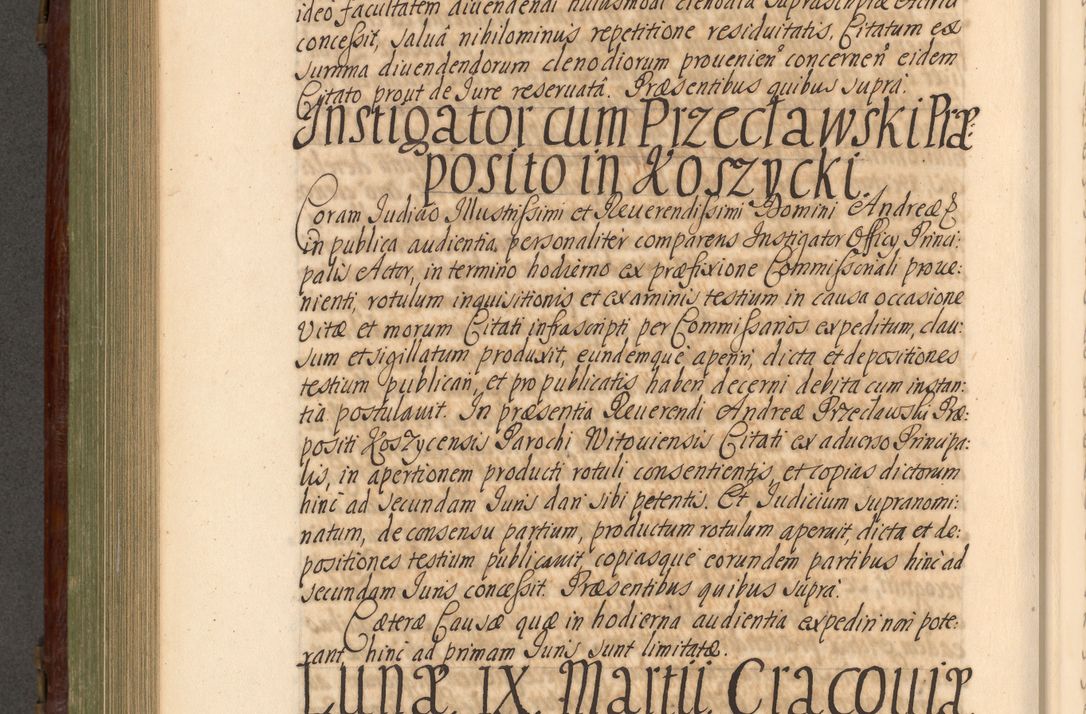 ideo facultatem diuendendi huiusmodi clenodia suprascripta Actria
concessit, salua nihilominus repetitione residuitatis, Citatum ex
summa diuendendorum clenodiorum prouenien̄ concernen̄ eidem
Citato prout de Iure reseruatâ. Præsentibus quibus suprà.
Instigator cum Przecławski Præ-
posito in Koszycki
Coram Iudicio Illustrissimi et Reuerendissimi Domini Andreæ &
in publica audientia personalitèr comparens Instigator Officÿ Princi:
palis Actor, in termino hodierno ex præfixione Commissoriali proue:
nienti, rotulum inquisitionis et examinis testium in causa occasione
Vitæ et morum Citati infrascripti per Commissarios expeditum, clau:
sum et sigillatum produxit, eundemque aperiri, dicta et depositiones
testium publicari, et pro publicatis haberi decerni debita cum instan:
tia postulauit. In præsentia Reuerendi Andreæ Przecławski Præ:
positi Koszycensis Parochi Witouiensis Citati ex aduerso Principa:
lis, in apertionem producti rotuli consentientis, et copias dictorum
hinc ad secundam Iuris dari sibi petentis. Et Iudicium supranomi:
natum, de consensu partium, productum rotulum aperuit, dicta et de:
positiones testium publicauit, copiasque eorundem partibus hinc ad
secundam Iuris concessit. Præsentibus quibus suprà.
Cæteræ Causæ quæ in hodierna audientia expediri non pote:
rant, hinc ad primam Iuris sunt limitatæ.
Lunæ IX. Martii Cracouiæ